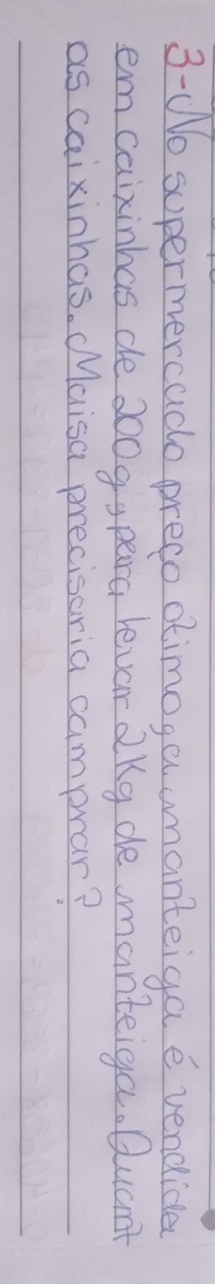 3-No supermercado preço ótimo, a manteiga é vendida
em caixinhas de 200g, para levar 2Kg de manteiga. Quant
as caixinhas. Maisa precisaria camprar?